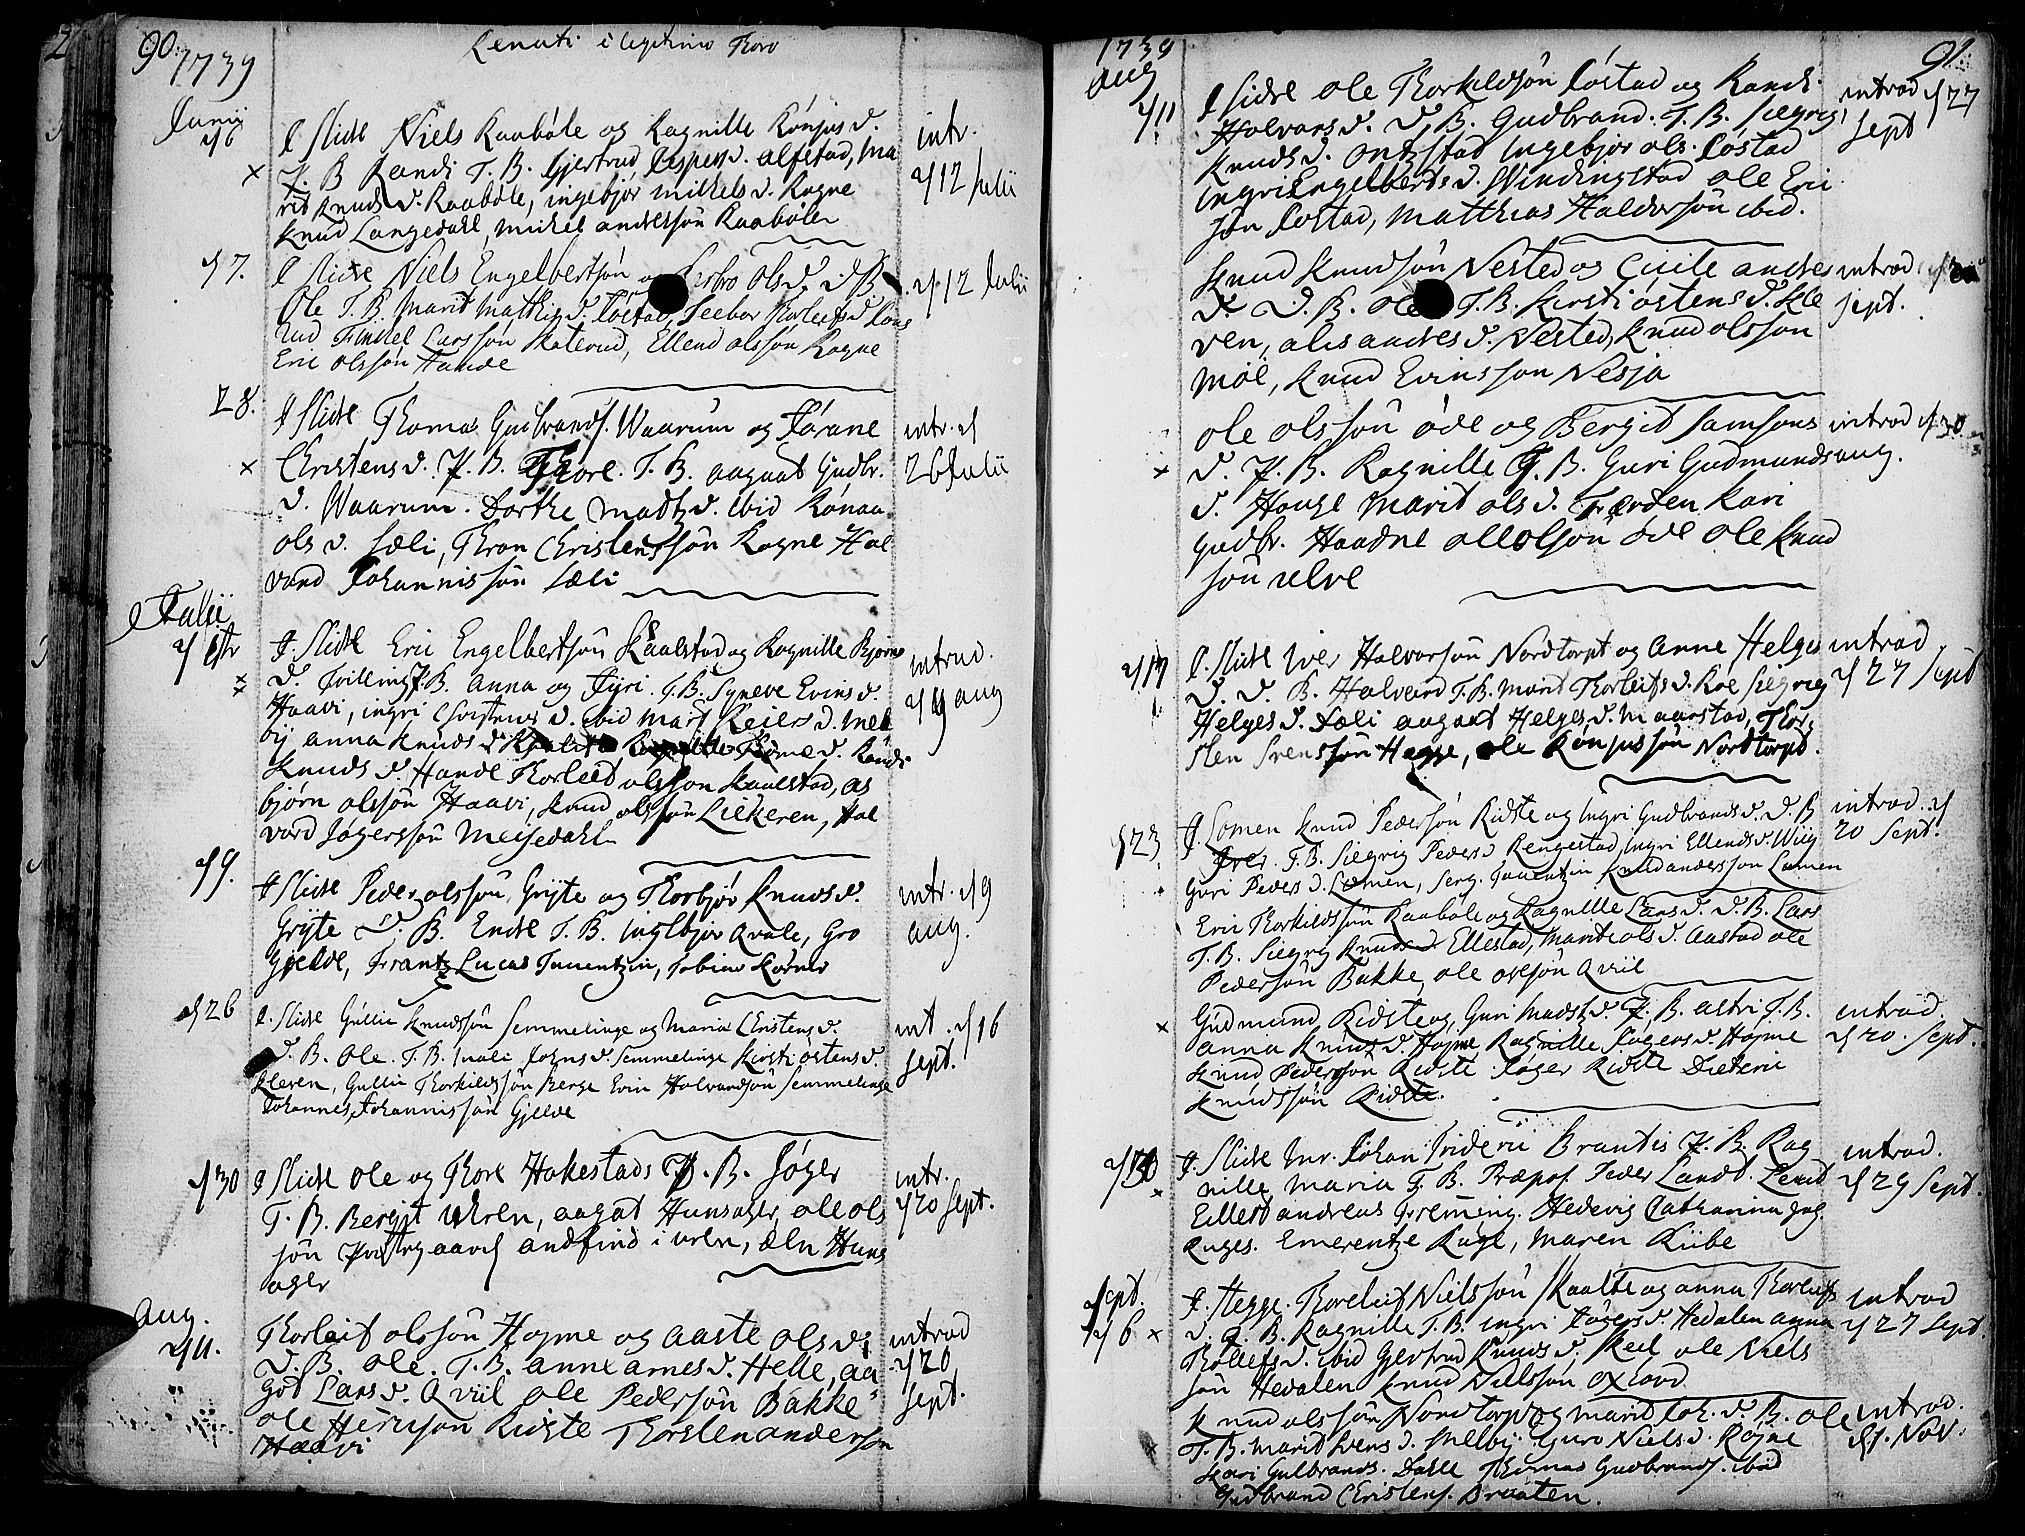 90.
1739
Renati i legitimo Thoro
Junii
d 6
I Slidre Niels Raabøle og Ragnille Rønjus d.
P. B. Randi T. B. Gjertrud Jespers d. Alfstad, Ma
rit Knuds d. Raabøle, ingebjør Mickels d. Rogne
Knud Langedahl, Mickel andersøn Raabøle
intr.
d 12 Julii
d 7.
I Slidre Niels Engelbertsøn og Ols d. D. B.
Ole T. B. Marit Matthis d. Løstad, Seebor Thorleifs d.
rud Finckel Larssøn Skaterud, Ellend olssøn Rogne
Eric olssøn Hande
d 12 Julii
28.
I Slidre Thomas Gudbrands. Waarum og Jørane
Christens d. P. B. Thore. T. B. aagaat Gudbr.
d. Waarum. Dorthe Madts d. ibid Rønau
ols d. Sæli, Thron Christenssøn Rogne Hal
vard Johannissøn Sæli
intr. d
26 Julii
Julii
I. Slidre Eric Engelbertsøn Kaalstad og Ragnille Bjørns
d. Tvilling P. B. Anna og Jyri. T. B. Syneve Evins d.
Haavi, ingri Christens d. ibid Marit Reiers d. Mel
bÿ anna Knuds d. Randi
Knuds d. Hande Thorleif olssøn Kaalstad, as
bjørn olssøn Haavi, Knud olssøn Liekeren, Hal
vard Jøgerssøn Meisedahl
introd.
d 9 aug
d 9.
I Slidre Peder olssøn Grÿte og Thorbjør Knuds d.
Grÿte D. B. Endre T. B. Ingebjør Qvale, Gro
Gjelde, Frantz Lucas Tauentzin, Tobias Kørner
intr. d 9
aug.
d 26
I. Slidre Gullic Knudsøn Semmelinge og Maria Christens d.
D. B. Ole. T. B. Mali Johns d. Semmelinge Kirsti østens d.
Kleven, Gullic Thorkildssøn Berge Evin Halvardsøn Semmelinge
Johannes Johannissøn Gjelde
int. d 16
sept.
d 30
I Slidre Ole og Thore Hakestads D. B. Jøger
T. B. Bergit Uren, aagat Hunsager, ole ols
søn Præstgaard andfind i uren, Hans
ager
intr.
d 20 Sept.
Aug.
d 11.
Thorleif olssøn Hojme og aaste ols d.
D. B. ole. T. B. anne arnes d. Helle, aa
got Lars d. Qviil ole Pedersøn Bakke
ole Hermson Ridste Thorsten anderson
Haavi
introd
d 20
Sept.
1739
aug
91.
d 11
I Slidre ole Thorkildsøn Løstad og Randi
Halvars d. D. B. Gudbrand. T. B. Siegrig
Knuds d. Ontzstad Ingebjør ols. Løstad
ingri Engelberts d. Windingstad ole Eric
søn Løstad, Matthias Haldorsøn ibid.
introd d 27
Sept
Knud Knudsøn Nested og Cicile andres
d. D. B. ole T. B. Kirsti østens d. Kle
ven, alis andres d. Nested, Knud olssøn
Møl, Knud Evinssøn Nesja
introd
sept.
ole olssøn øde og Bergit Samsons
d. P. B. Ragnille T. B. Guri Gudmunds
d. Houge Marit ols d. Færden Kari
Gudbr. Haadne olle olsøn øde ole Knud
søn ulve
introd d 30
aug.
d 17
I. Slidre Iver Halvorsøn Nordtorpt og Anne Helges
d. D. B. Halvard T. B. Marit Thorleifs d. Roe Siegrig
Helges d. Sæli aagaat Helges d. Maarstad, Thor
sten Svenssøn Hegge, ole Rønjussøn Nordtorpt.
introd
d 27 Sept
d 23
I. Lomen Knud Pedersøn Ridste og Ingri Gudbrands d. D. B
Iver. T. B. Siegrig Peders d. Rengestad, ingri Ellends d. Wiig
Guri Peders d. Lomen, Serg. Tauentzin Knud anderssøn Lomen
introd. d
20 Sept.
Eric Thorkildssøn Raabøle og Ragnille Lars d. D. B. Lars
T. B. Siegrig Knuds d. Ellestad, Marit ols d. Aastad ole
Pedersøn Bakke, ole olssøn Qviil
Gudmund Ridste og Guri Madts d. P. B. astri T. B.
anna Knuds d. Hojme Ragnille Jøgers d. Hojme
Knud Pedersøn Ridste Jøger Ridste Dieteric
Knudssøn Ridste.
introd.
d 20. Sept.
d 30
I. Slidre Mr. Johan Frideric Brantis P. B. Rag
nille Maria T. B. Præpos. Peder Landt. Leut
Eillert andreas Fremming. Hedevig Catharina
Ruges. Emerentze Ruge, Maren Riibe
introd.
d 29 Sept.
Sept.
d 6
I. Hegge. Thorleif Nielssøn Skaalte og anna Thorleifs
d. P. B. Ragnille T. B. ingri Jøgers d. Hedalen anna
Thollefs d. ibid Gertrud Knuds d. ole Niels
søn Hedalen Knud Nielssøn
introd
d 27 Sept.
Knud olssøn Nordtorp og Marit Joh. d. B. ole
T. B. Marit Svens d. Melbÿ Guro Niels d. Rogne
Kari Gulbrands. Dahle Thomas Gudbrands. ibid
Gudbrand Christens. Braaten.
introd.
d 1. Nov.